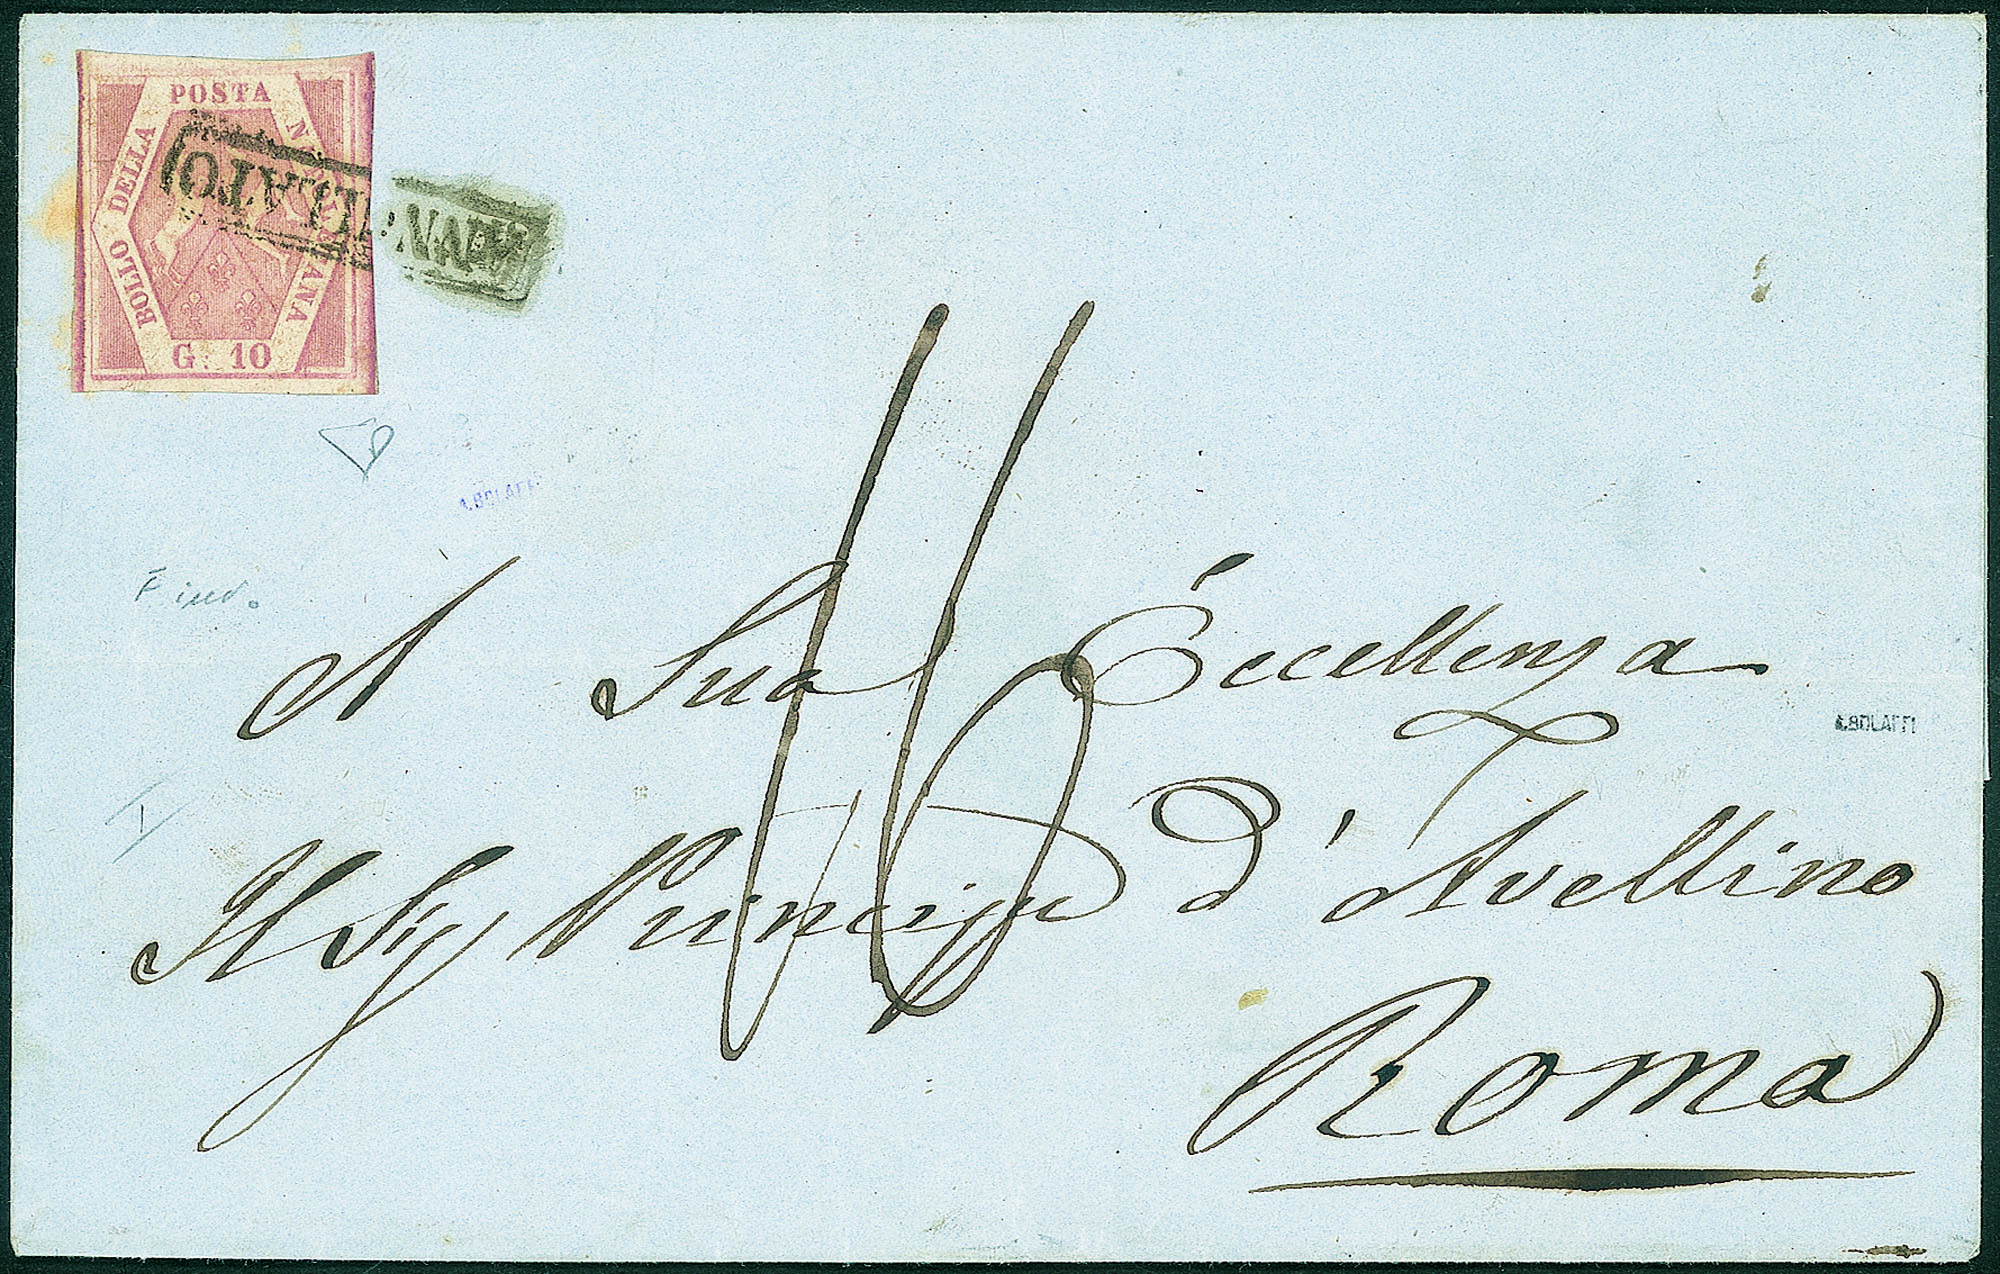 POSTA
BOLLO DELLA
NAPOLETANA
G. 10
ANNULLATO
16
A. BOLAFFI
A Sua Eccellenza
A. BOLAFFI
Il Sig Principe d'Avellino
Roma